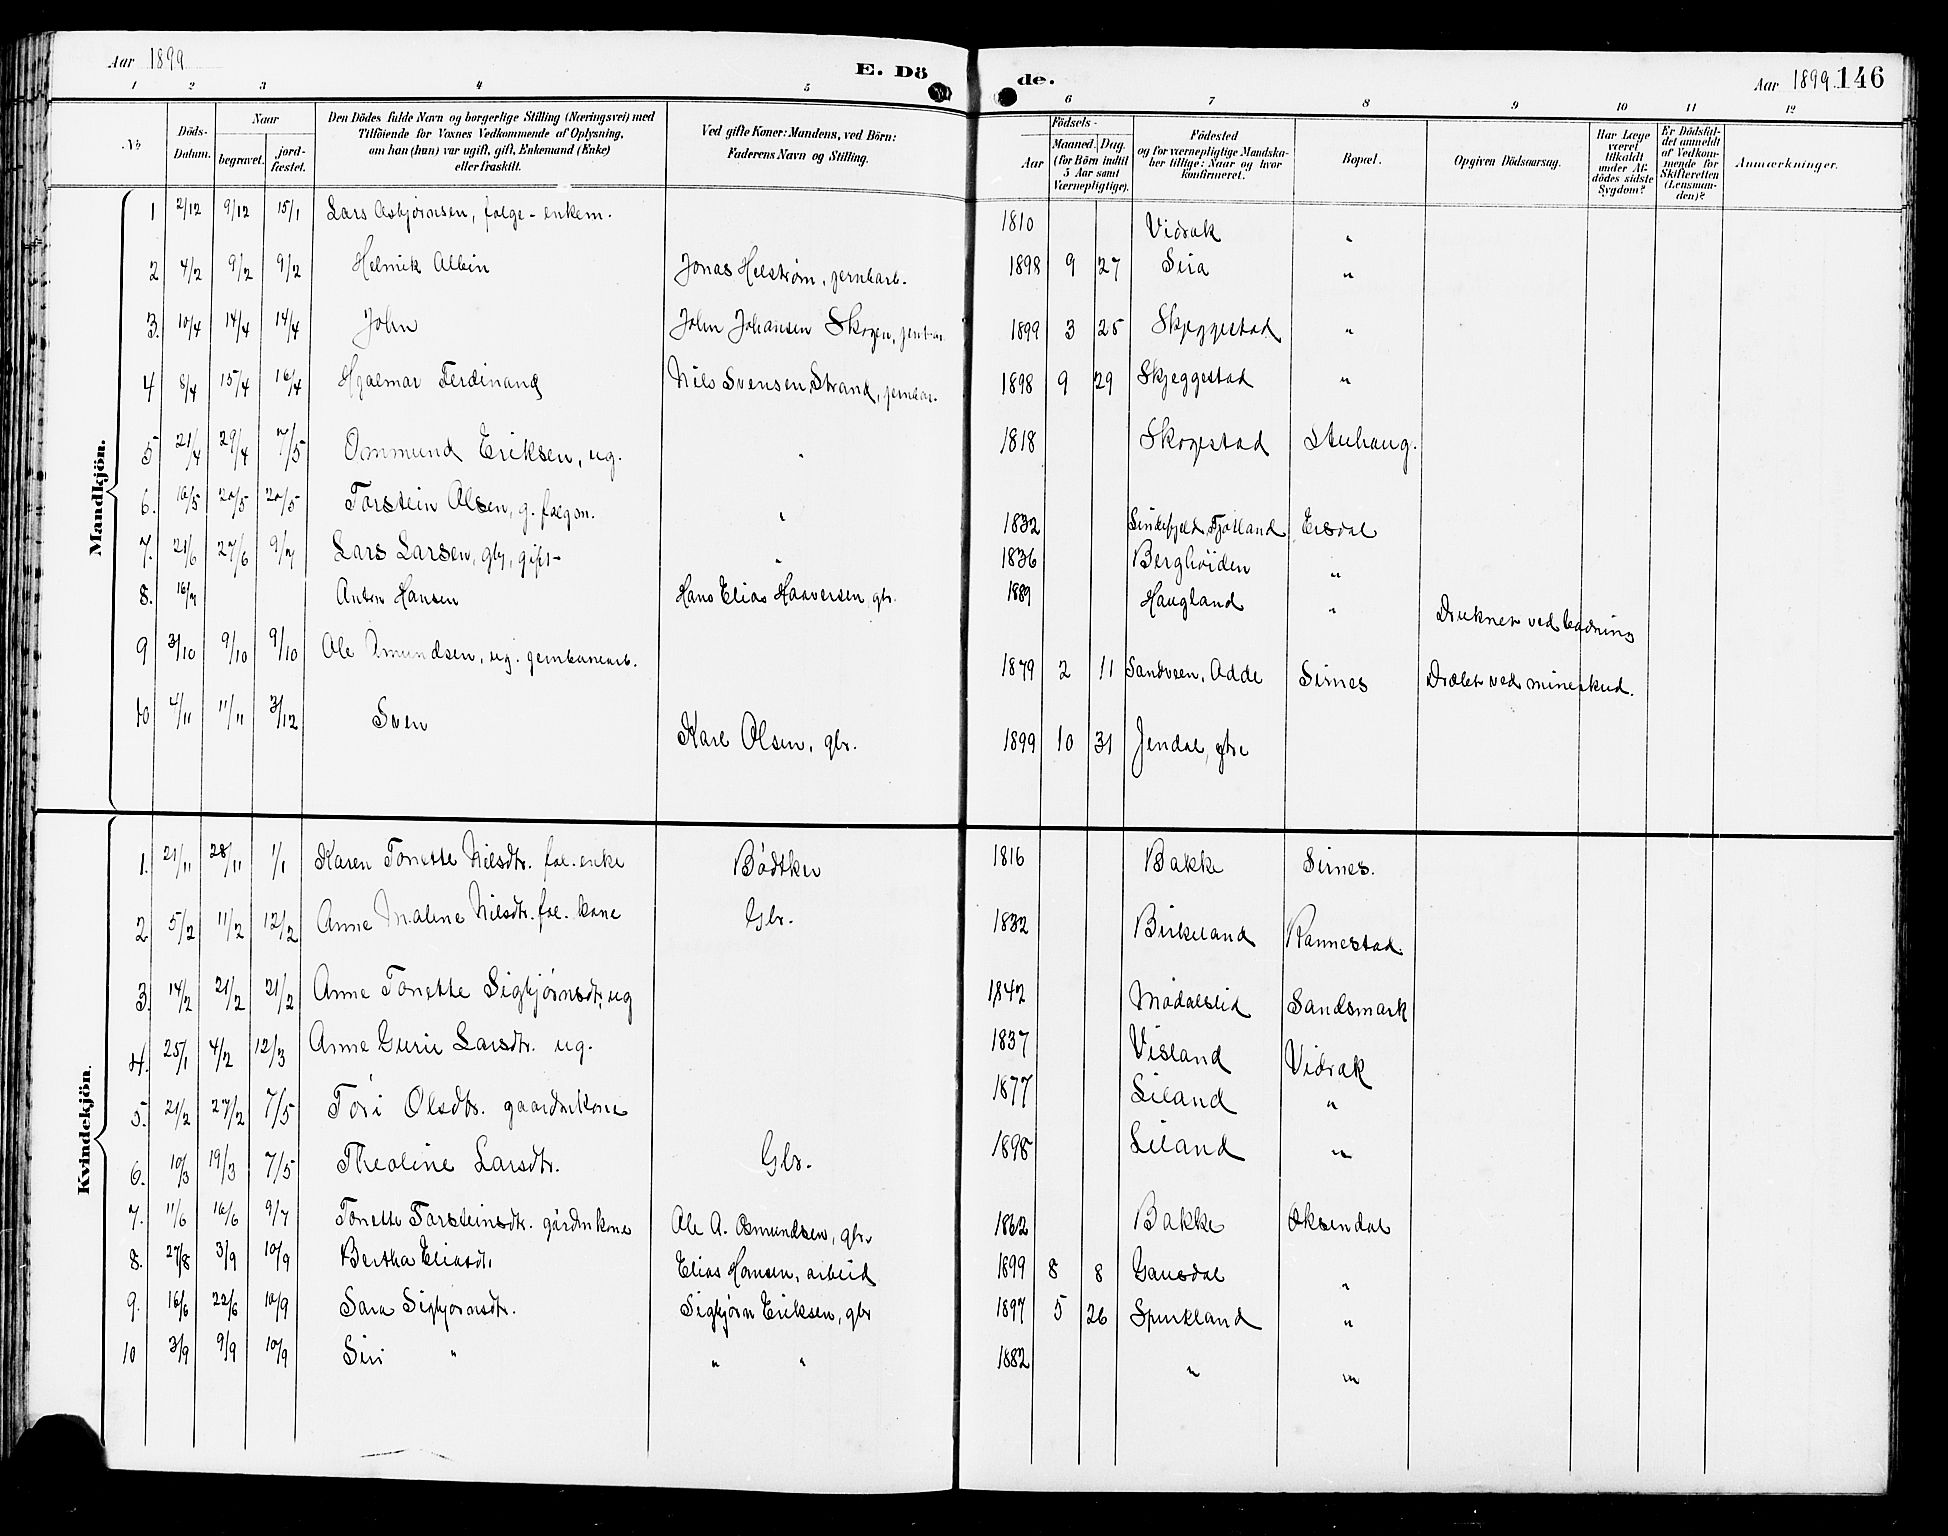 Aar 1899 E. Dö de. Aar 1899. 146
1 2 3 4 5 6 7 8 9 10 11 12
No
Döds-Datum.
Naar
begravet.
jordfæstet.
Den Dödes fulde Navn og borgerlige Stilling (Næringsvei) med
Tilföiende for Voxnes Vedkommende af Oplysning,
om han (hun) var ugift, gift, Enkemand (Enke)
eller fraskilt.
Ved gifte Koner: Mandens, ved Börn:
Faderens Navn og Stilling.
Födsels-
Aar
Maaned. Dag.
(for Börn indtil
5 Aar samt
Værnepligtige).
Födested
og for værnepligtige Mandskaber tillige: Naar og hvor
konfirmeret.
Bopæl.
Opgiven Dödsaarsag.
Har Læge
været
tilkaldt
under Afdödes sidste
Sygdom?
Er Dödsfaldet anmeldt
af Vedkommende for
Skifteretten
(Lensmanden)?
Anmærkninger.
Mandkjön.
1 2/12 9/12 15/1 Lars Asbjørnsen, folge-enkem. 1810 Vidrak "
2 4/2 9/2 9/2 Helmik Albin Jonas Helstrøm, jernbarb. 1898 9 27 Sira "
3. 10/4 14/4 14/4 John John Johansen Skogen, 1899 3 25 Skjeggestad "
4 8/4 15/4 16/4 Hjalmar Ferdinand Nils Svensen Strand, jernbar. 1898 9 29 Skjeggestad "
5 21/4 29/4 7/5 Ommund Eriksen, ug. " 1818 Skogestad Stuhaug.
6. 16/5 20/5 20/5 Torstein Olsen, g. folgm. " 1832 Sindefjeld, Fjotland Ersdal
7. 21/6 27/6 9/7 Lars Larsen, gbr, gift- " 1836 Berghöiden "
8. 16/7 Anton Hansen Hans Elias Haaversen, gbr. 1889 Haugland " Druknet ved badning
9 3/10 9/10 9/10 Ole Omundsen, ug. jernbanearb. 1879 2 11 Sandvsen, Odde Sirnes Dræbt ved mineskud.
10 4/11 11/11 3/12 Sven Karl Olsen, gbr. 1899 10 31 Jendal,
Kvindekjön.
1. 21/11 28/11 1/1 Karen Tonette Nilsdtr. fol. enke Bødtker 1816 Bakke Sirnes.
2 5/2 11/2 12/2 Anne Malene Nilsdtr. fol. kone Gbr. 1832 Birkeland Rannestad.
3. 14/2 21/2 21/2 Anne Tonette Sigbjørnsdtr, ug 1842 Mødalslid Sandsmark
4. 25/1 4/2 12/3 Anne Gurie Larsdtr. ug. 1837 Visland Vidrak
5. 21/2 27/2 7/5 Tóri Olsdtr. gaardmkone 1877 Liland "
6. 10/3 19/3 7/5 Theoline Larsdtr. Gbr. 1898 Liland "
7. 11/6 16/6 9/7 Tonette Torsteinsdtr. gårdmkone Ole A. Osmundsen, gbr. 1862 Bakke Øksendal
8. 27/8 3/9 10/9 Bertha Eliasdtr Elias Hansen, arbeid 1899 8 8 Gausdal "
9. 16/6 22/6 10/9 Sara Sigbjørnsdtr. Sigbjørn Eriksen, gbr 1897 5 26 Spurkland "
10 3/9 9/9 10/9 Siri " " " 1882 " "